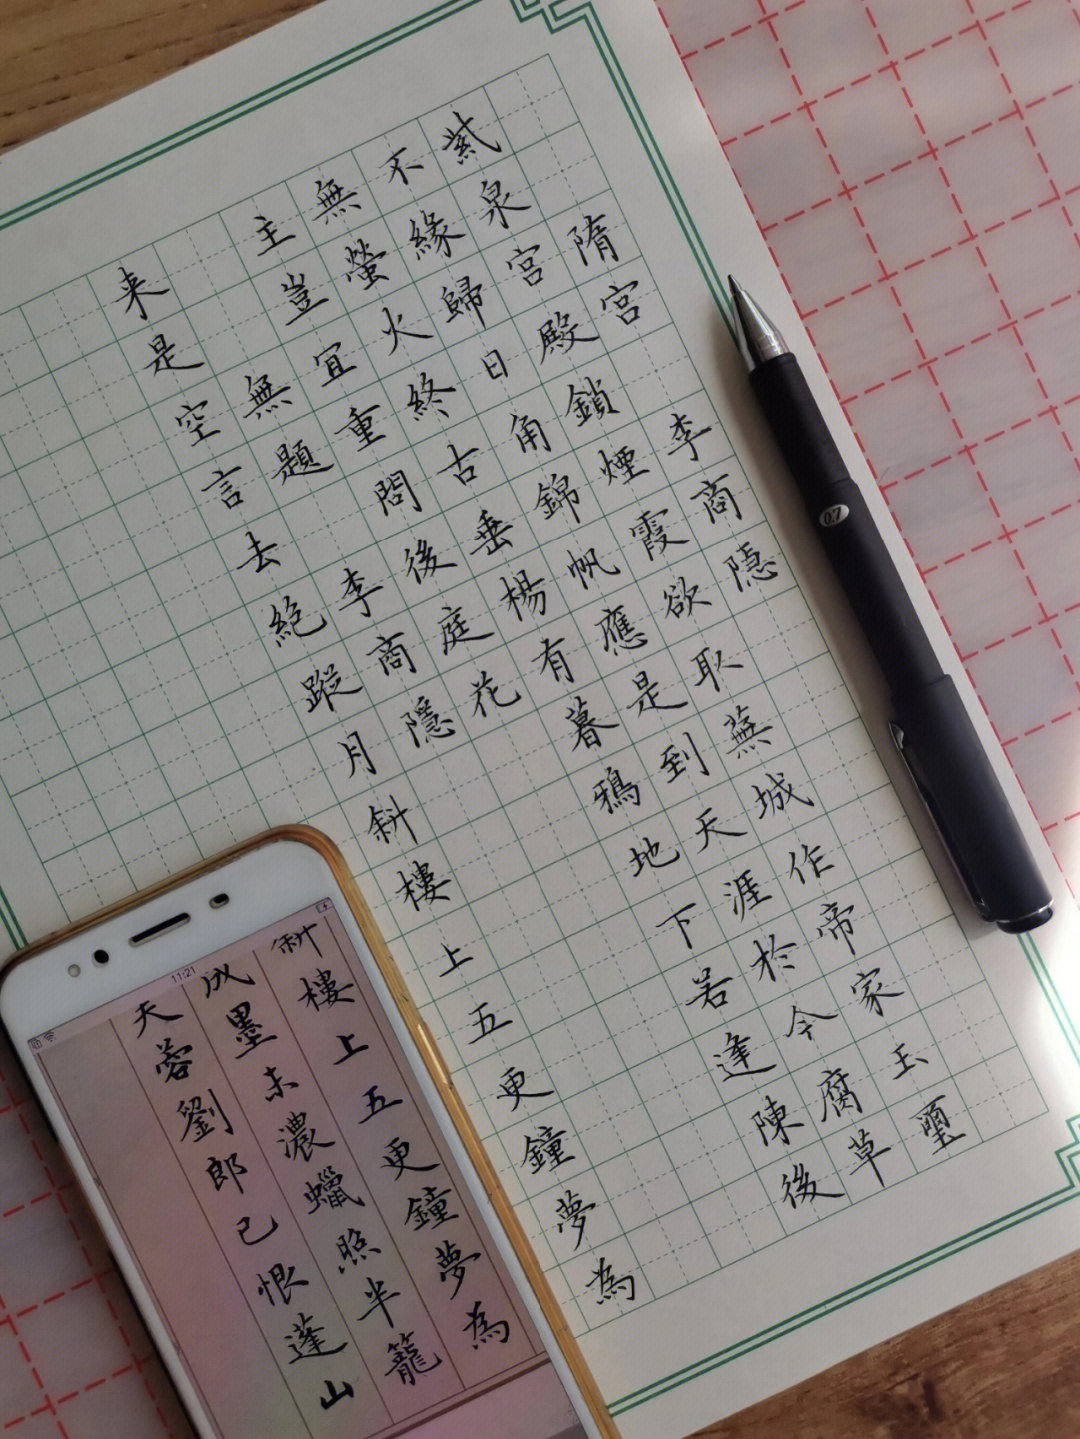 隋宮 李商隐
紫泉宮殿鎖煙霞欲取蕪城作帝家玉璽
不緣歸日角錦帆應是到天涯於今腐草
無螢火終古垂楊有暮鴉地下若逢陳後
主豈宜重問後庭花
無題 李商隱
来是空言去絕蹤月斜樓上五更鐘夢為
0.7
11:21
斜樓上五更鐘夢為
成墨未濃蠟照半籠
芙蓉劉郎已恨蓬山